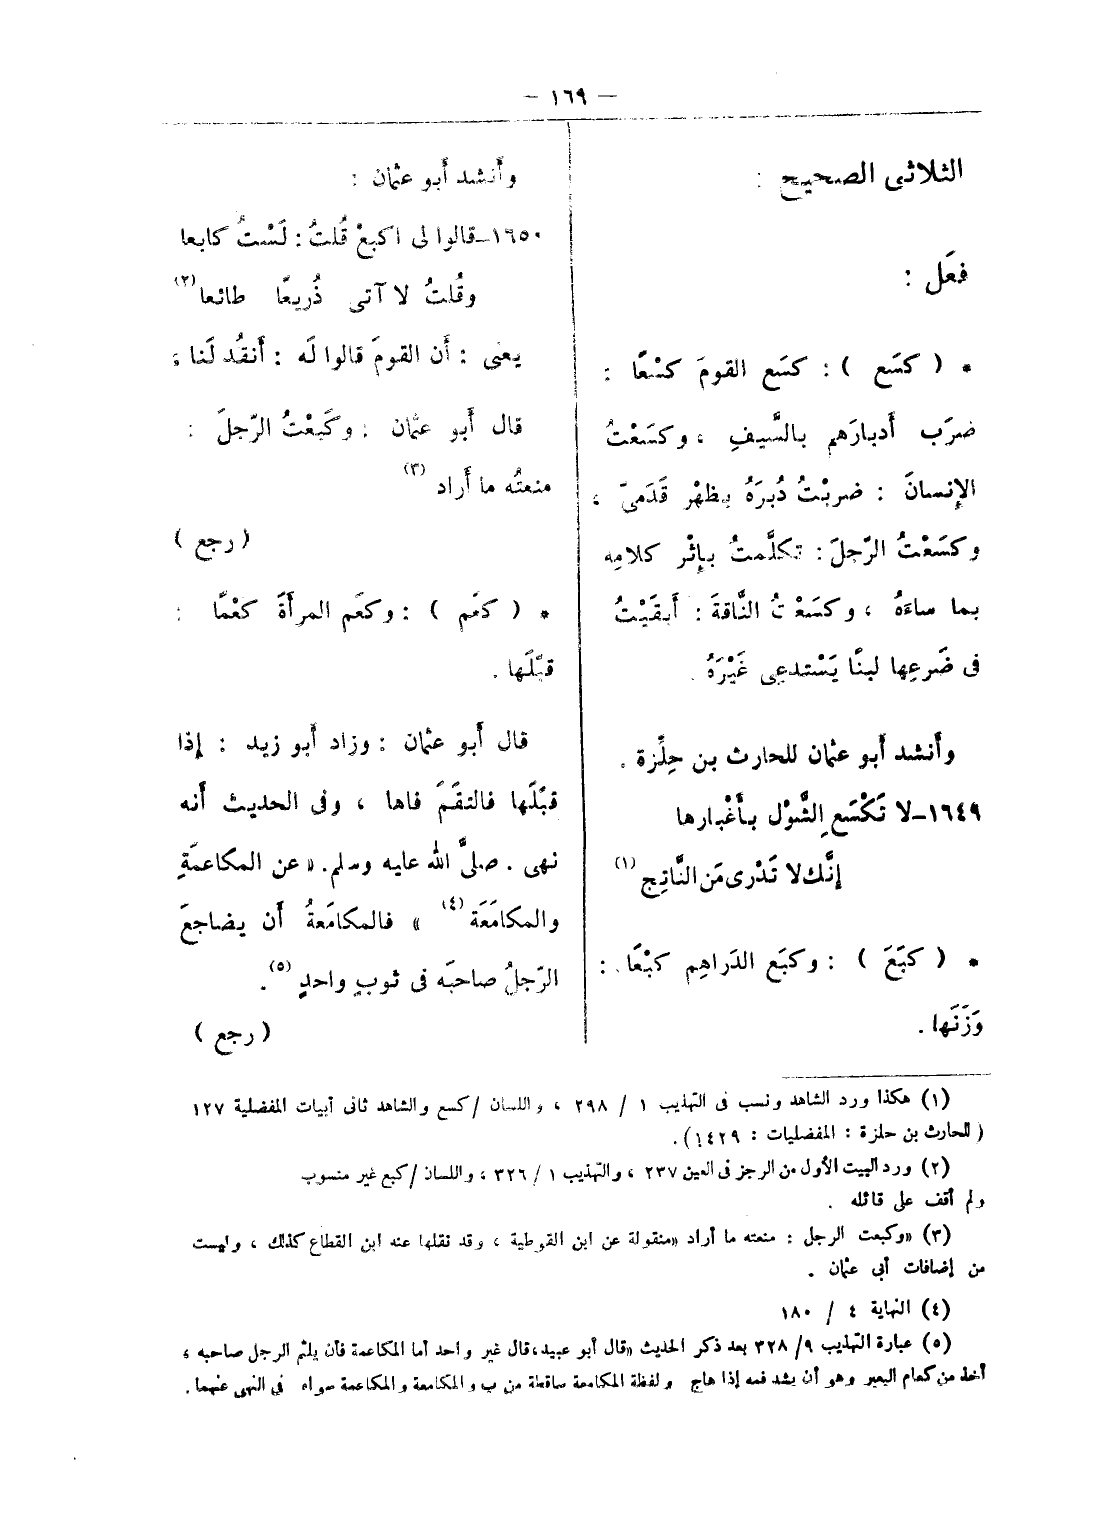 — ١٦٩ —
الثلاثى الصحيح :
فعَل :
* ( كسَع ) : كسَع القومَ كسْعًا :
ضرَب أدبارَهم بالسَّيفِ ، وكسَعْتُ
الإنسانَ : ضربْتُ دُبرَهُ بظهْر قَدَمىّ ،
وكسَعْتُ الرّجلَ : تكلَّمتُ بإِثْر كلامِه
بما ساءَهُ ، وكسَعْتُ النَّاقةَ : أبقَيْتُ
فى ضَرعِها لبنًا يَسْتدعِى غَيْرَهُ .
وأنشد أبو عثمان للحارث بن حِلِّزة .
١٦٤٩–لا تَكْسَعِ الشَّوْل بأَغْبارها
إنَّك لا تَدْرى مَن النَّاتِج (١)
* ( كبَعَ ) : وكبَع الدَراهِم كبْعًا . :
وَزَنَها .
وأَنشد أَبو عثمان :
١٦٥٠–قالوا لى اكبعْ قُلتُ : لَسْتُ كابعا
وقُلتُ لا آتى ذُريعًا طائعا (٢)
يعنى : أَن القومَ قالوا لَه : أَنقُد لَنا ،
قال أَبو عثمان : وكَبَعْتُ الرّجلَ :
منعتُه ما أَراد (٣)
( رجع )
* ( كعَم ) : وكعَم المرأَةَ كعْمًا :
قبّلَها .
قال أَبو عثمان : وزاد أَبو زيد : إذا
قبَّلَها فالتقَمَ فاها ، وفى الحديث أَنه
نهى . صلىَّ الله عليه وسلم . « عن المكاعمَةِ
والمكامَعَة (٤) » فالمكامَعةُ أَن يضاجعَ
الرّجلُ صاحبَه فى ثوبٍ واحدٍ (٥) .
( رجع )
(١) هكذا ورد الشاهد ونسب فى التهذيب ١ / ٢٩٨ ، واللسان / كسع والشاهد ثانى أبيات المفضلية ١٢٧
( للحارث بن حلزة : المفضليات : ١٤٢٩ ) .
(٢) ورد البيت الأول من الرجز فى العين ٢٣٧ ، والتهذيب ١ / ٣٢٦ ، واللسان / كبع غير منسوب
ولم أقف على قائله .
(٣) «وكبعت الرجل : منعته ما أراد «منقولة عن ابن القوطية ، وقد نقلها عنه ابن القطاع كذلك ، وليست
من إضافات أبى عثمان .
(٤) النهاية ٤ / ١٨٠
(٥) عبارة التهذيب ٩/ ٣٢٨ بعد ذكر الحديث «قال أبو عبيد،قال غير واحد أما المكاعمة فأن يلثم الرجل صاحبه ،
أخذ من كعام البعير وهو أن يشد فمه إذا هاج ولفظة المكامعة ساقطة من ب والمكامعة والمكاعمة سواء فى النهى عنهما .